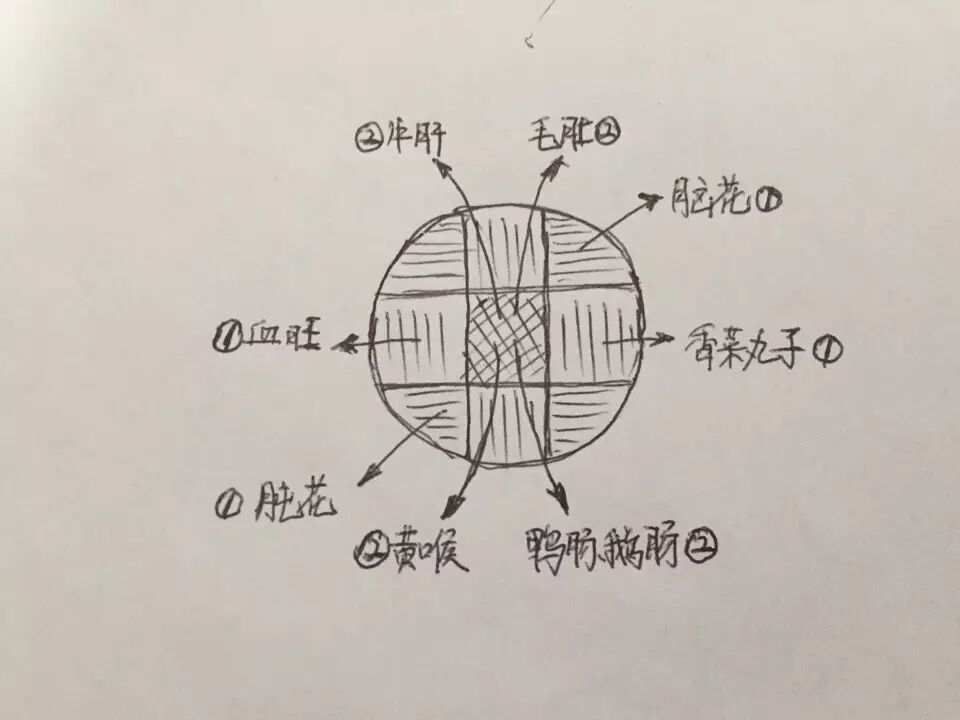 ②牛肝
毛肚②
脑花①
①血旺
香菜丸子①
①肫花
②黄喉
鸭肠鹅肠②